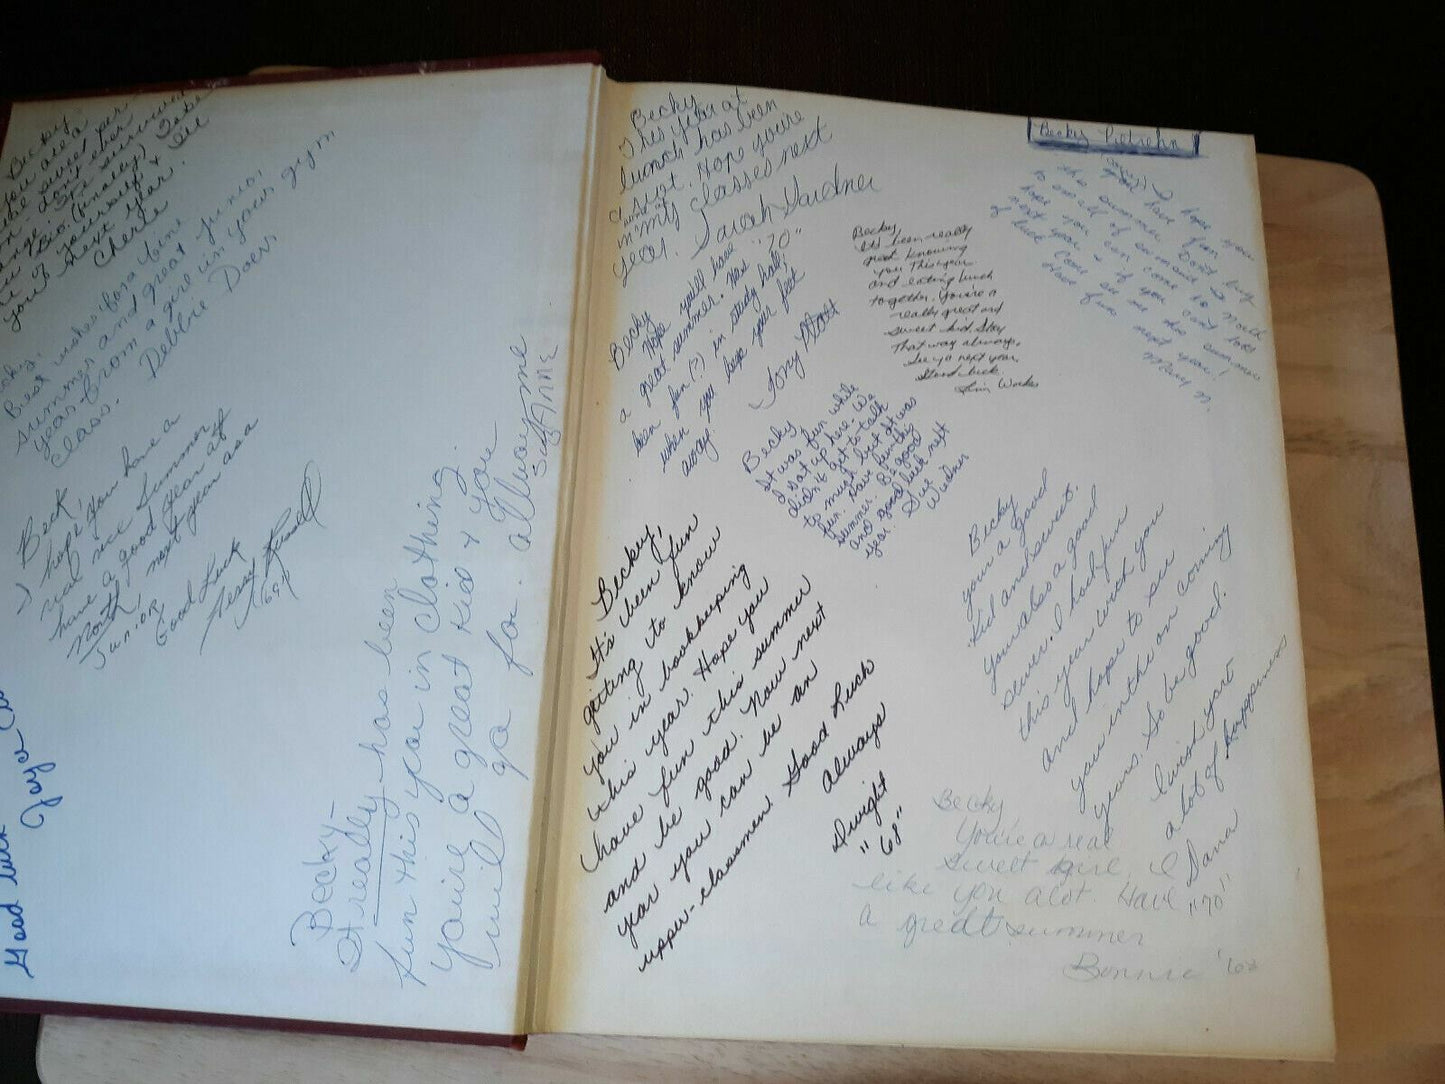 Becky
you are a
real sweet per
son don't ever
change. I'm surviving
in Bio. (finally) Take
care of yourself & I'll
you'll next year.
Cherle
Becky,
Best wishes for a fine
summer and great junior
year from a girl in your gym
class.
Debbie Doer
Beck
I hope you have a
real nice Summer
have a good year at
North next year as a
Junior
Good Luck
Terry
68
Good luck
Joyce
Becky-
It really has been
fun this year in clothing.
You're a great kid & you
will go far. Always me
Suzanne
Becky
This year at
lunch has been
a riot. Hope you're
in my classes next
year. Sarah Gardner
Becky
Hope you'll have
a great summer. Has
been fun (?) in study hall,
when you keep your feet
away.
"70"
Tony
Becky
It's been really
great knowing
you this year
and eating lunch
together. You're a
really great and
sweet kid. Stay
that way always.
See ya next year
Good luck.
Becky
It was fun while
I sat up here. We
didn't get to talk
to much but it was
fun. Have fun this
summer. Be good
and good luck next
year. Sue
Becky,
It's been fun
getting to know
you in bookkeeping
this year. Hope you
have fun this summer
and be good. Now next
year you can be an
upper-classmen. Good Luck
always
Dwight
"68"
Becky Pietrehn
I hope you
have fun
this summer. Don't
hope you can come to North
next year & if you can't lots
of luck. Come see me this summer
Have fun next year!
Mary N.
Becky
your a good
kid and sweet.
You also a good
sewer. I had fun
this year with you
and hope to see
you in the on coming
years. So be good.
I wish you
a lot of happiness
Dana
"70"
Becky,
You're a real
sweet girl. I
like you alot. Have
a great summer
Bonnie '68